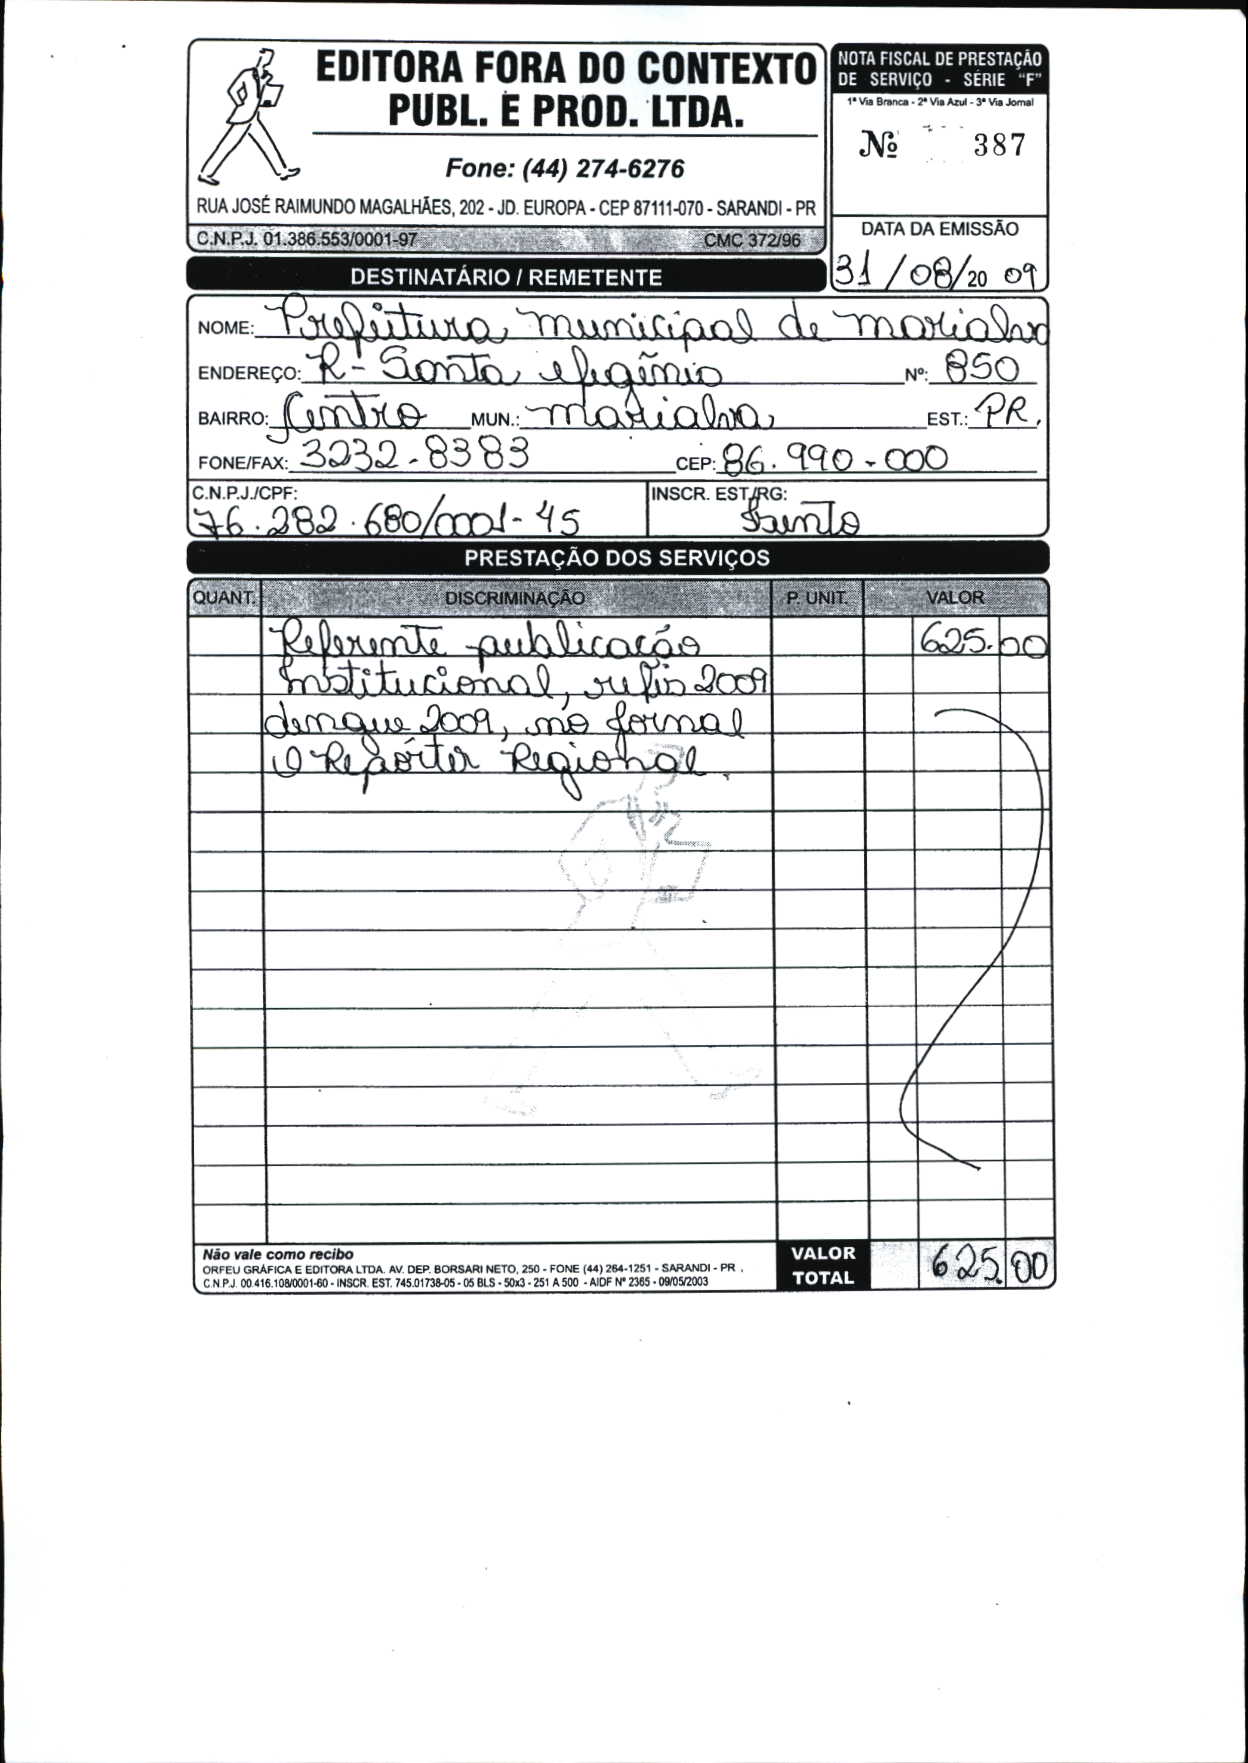 EDITORA FORA DO CONTEXTO
PUBL. E PROD. LTDA.
Fone: (44) 274-6276
RUA JOSÉ RAIMUNDO MAGALHÃES, 202 - JD. EUROPA - CEP 87111-070 - SARANDI - PR
C.N.P.J. 01.386.553/0001-97 CMC 372/96
NOTA FISCAL DE PRESTAÇÃO
DE SERVIÇO - SÉRIE "F"
1ª Via Branca - 2ª Via Azul - 3ª Via Jornal
Nº 387
DATA DA EMISSÃO
31/08/2009
DESTINATÁRIO / REMETENTE
NOME: Prefeitura municipal de marialva
ENDEREÇO: R- Santa efigênia Nº: 850
BAIRRO: Centro MUN.: marialva EST.: PR.
FONE/FAX: 3232-8383 CEP: 86.990-000
C.N.P.J./CPF: INSCR. EST./RG:
76.282.680/0001-45 Isento
PRESTAÇÃO DOS SERVIÇOS
QUANT. DISCRIMINAÇÃO P. UNIT. VALOR
Referente publicação 625.00
Institucional, refis 2009
dengue 2009, no jornal
O Repórter Regional.
Não vale como recibo
ORFEU GRÁFICA E EDITORA LTDA. AV. DEP. BORSARI NETO, 250 - FONE (44) 264-1251 - SARANDI - PR .
C.N.P.J. 00.416.108/0001-60 - INSCR. EST. 745.01738-05 - 05 BLS - 50x3 - 251 A 500 - AIDF Nº 2365 - 09/05/2003
VALOR
TOTAL 625.00